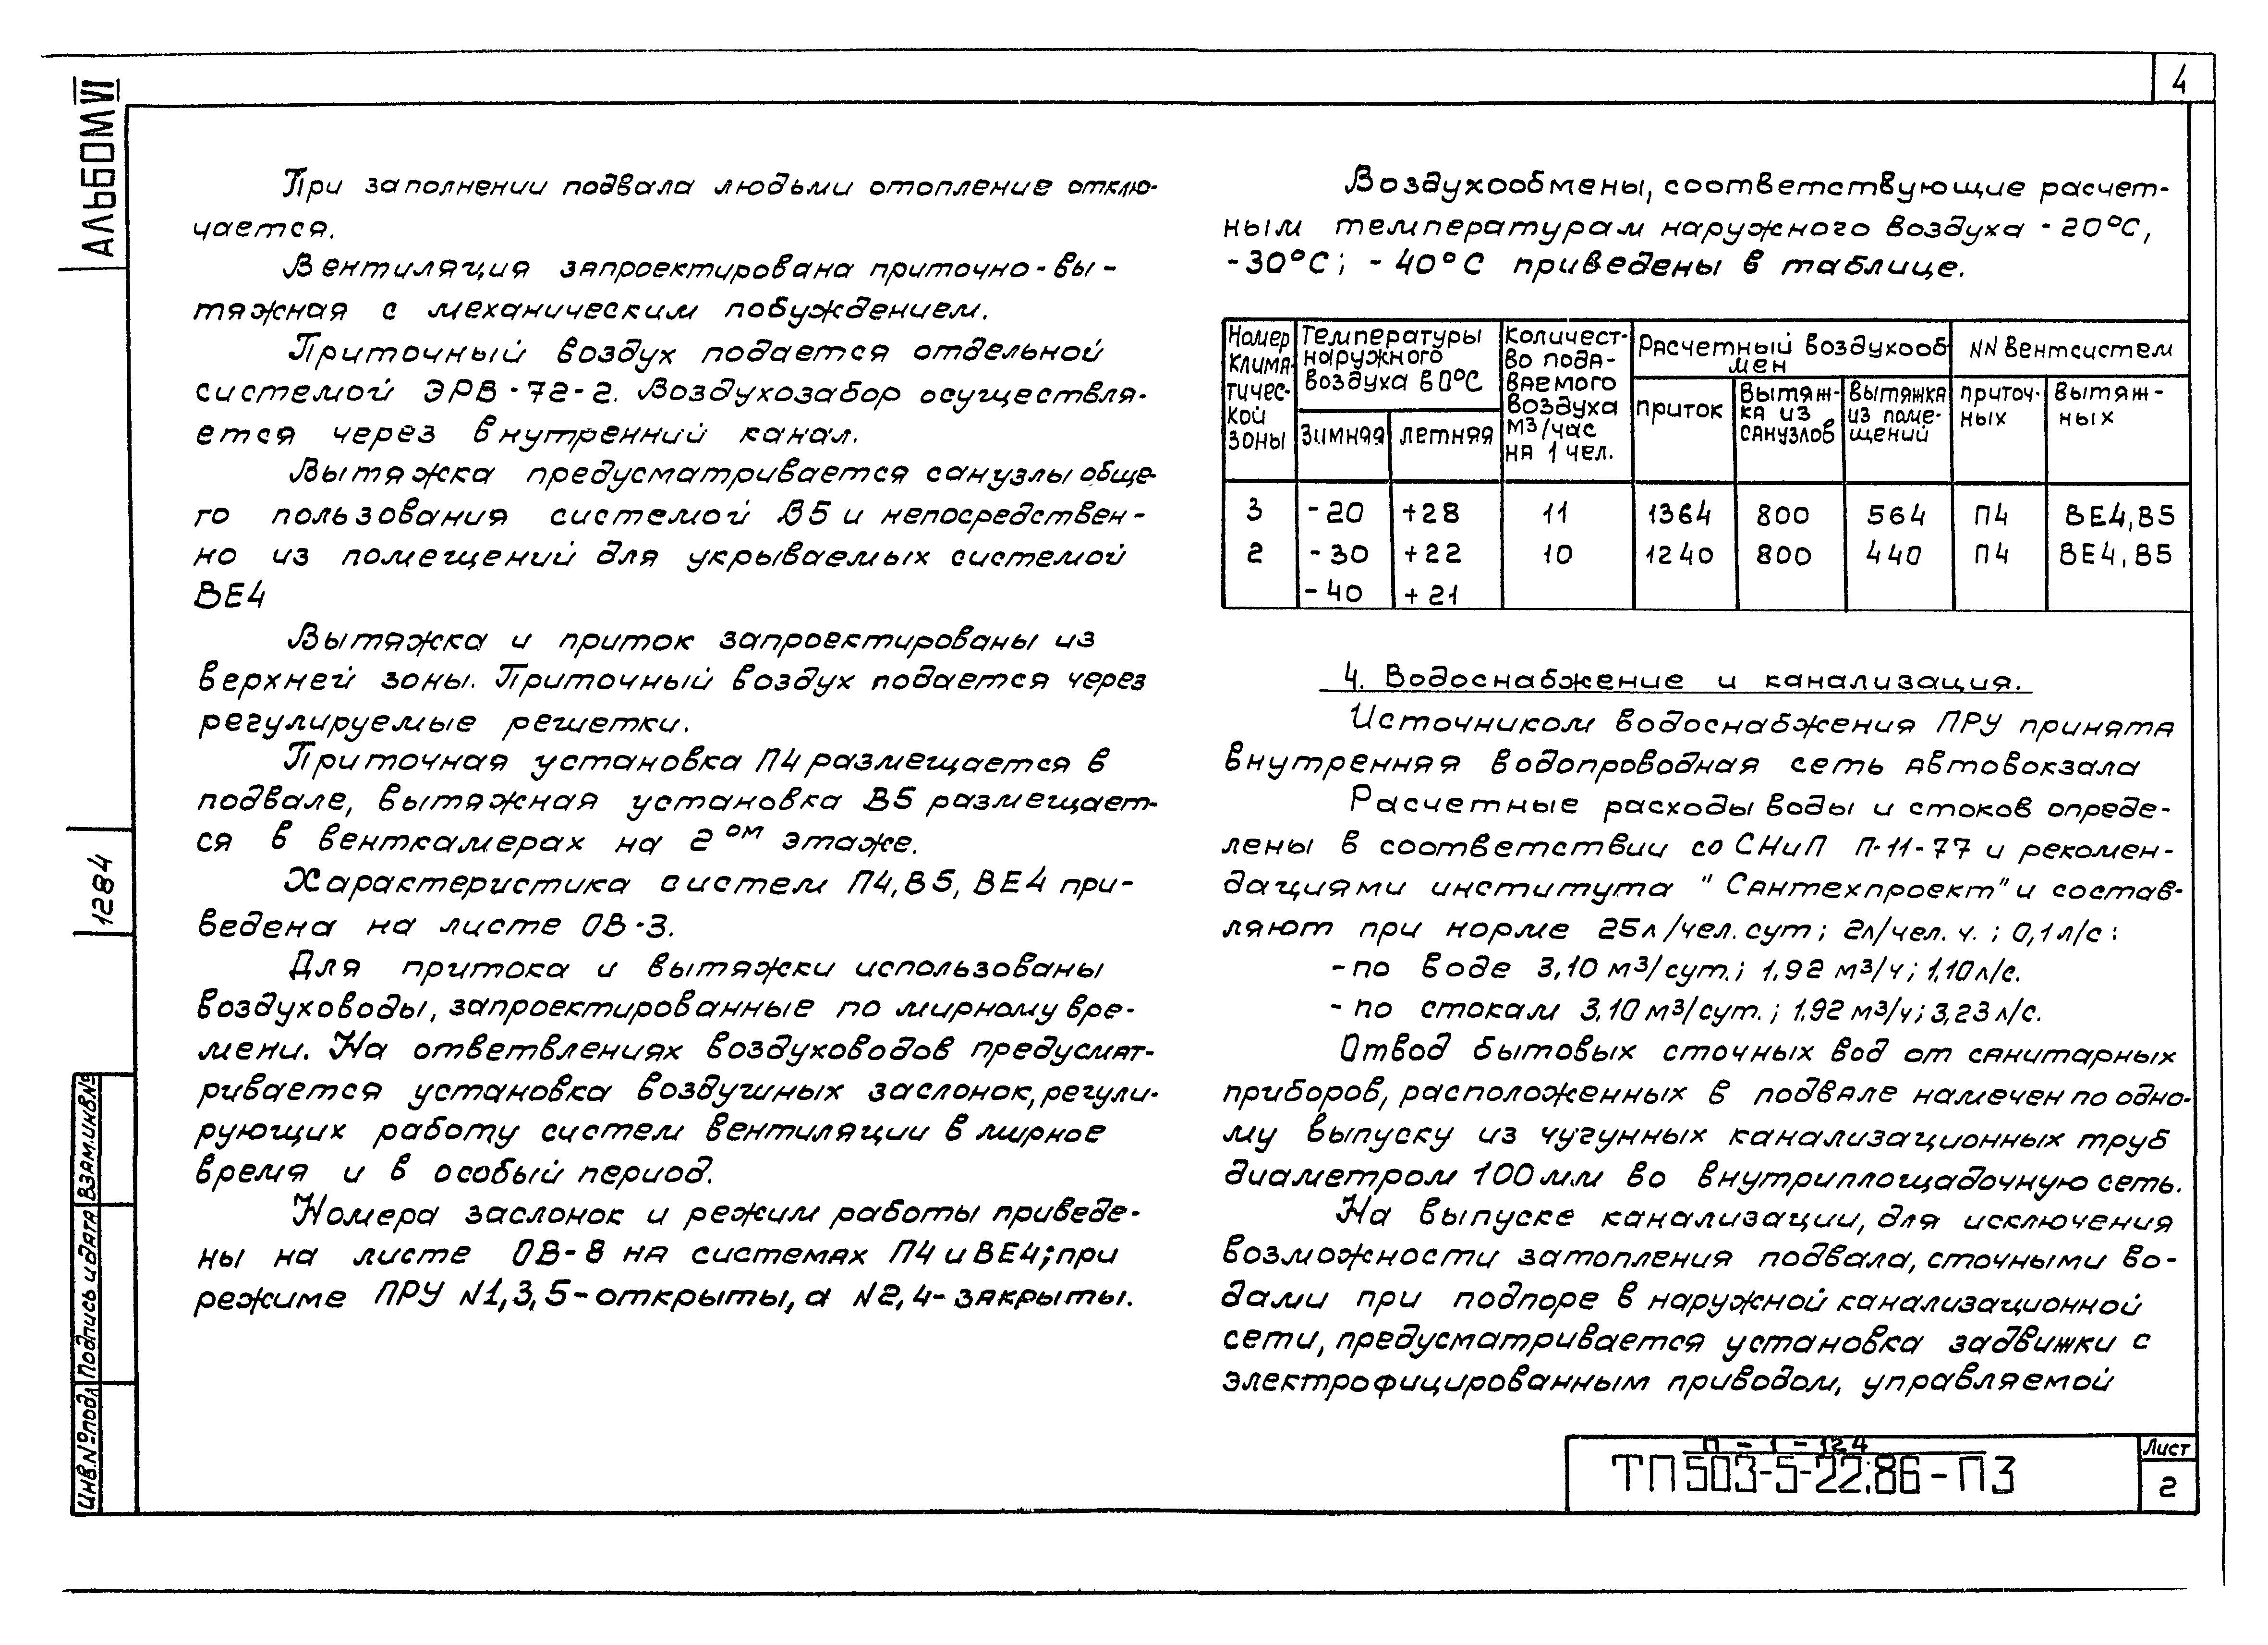 4
АЛЬБОМ VI
При заполнении подвала людьми отопление отклю-
чается.
Вентиляция запроектирована приточно-вы-
тяжная с механическим побуждением.
Приточный воздух подается отдельной
системой ЭРВ-72-2. Воздухозабор осуществля-
ется через внутренний канал.
Вытяжка предусматривается санузлы обще-
го пользования системой В5 и непосредствен-
но из помещений для укрываемых системой
ВЕ4
Вытяжка и приток запроектированы из
верхней зоны. Приточный воздух подается через
регулируемые решетки.
Приточная установка П4 размещается в
подвале, вытяжная установка В5 размещает-
ся в венткамерах на 2ом этаже.
Характеристика систем П4, В5, ВЕ4 при-
ведена на листе ОВ-3.
Для притока и вытяжки использованы
воздуховоды, запроектированные по мирному вре-
мени. На ответвлениях воздуховодов предусмат-
ривается установка воздушных заслонок, регули-
рующих работу систем вентиляции в мирное
время и в особый период.
Номера заслонок и режим работы приведе-
ны на листе ОВ-8 на системах П4 и ВЕ4; при
режиме ПРУ N1,3,5-открыты, а N2,4-закрыты.
Воздухообмены, соответствующие расчет-
ным температурам наружного воздуха -20°С,
-30°С; -40°С приведены в таблице.
Номер климатичес-кой зоны | Температуры наружного воздуха в 0°С | Количест-во пода-ваемого воздуха м3/час на 1 чел. | Расчетный воздухооб мен | NN вентсистем
зимняя | летняя | приток | вытяж-ка из санузлов | вытяжка из поме-щений | приточ-ных | вытяж-ных
3 | -20 | +28 | 11 | 1364 | 800 | 564 | П4 | ВЕ4, В5
2 | -30 | +22 | 10 | 1240 | 800 | 440 | П4 | ВЕ4, В5
-40 | +21
4. Водоснабжение и канализация.
Источником водоснабжения ПРУ принята
внутренняя водопроводная сеть автовокзала
Расчетные расходы воды и стоков опреде-
лены в соответствии со СНиП П-11-77 и рекомен-
дациями института "Сантехпроект" и состав-
ляют при норме 25л/чел.сут; 2л/чел.ч.; 0,1л/с:
-по воде 3,10 м3/сут.; 1,92 м3/ч; 1,10л/с.
-по стокам 3,10 м3/сут.; 1,92 м3/ч; 3,23 л/с.
Отвод бытовых сточных вод от санитарных
приборов, расположенных в подвале намечен по одно-
му выпуску из чугунных канализационных труб
диаметром 100мм во внутриплощадочную сеть.
На выпуске канализации, для исключения
возможности затопления подвала, сточными во-
дами при подпоре в наружной канализационной
сети, предусматривается установка задвижки с
электрофицированным приводом, управляемой
1284
Взам.инв.№
Подпись и дата
Инв.№подл
П-1-124
ТП 503-5-22.86-ПЗ
Лист
2